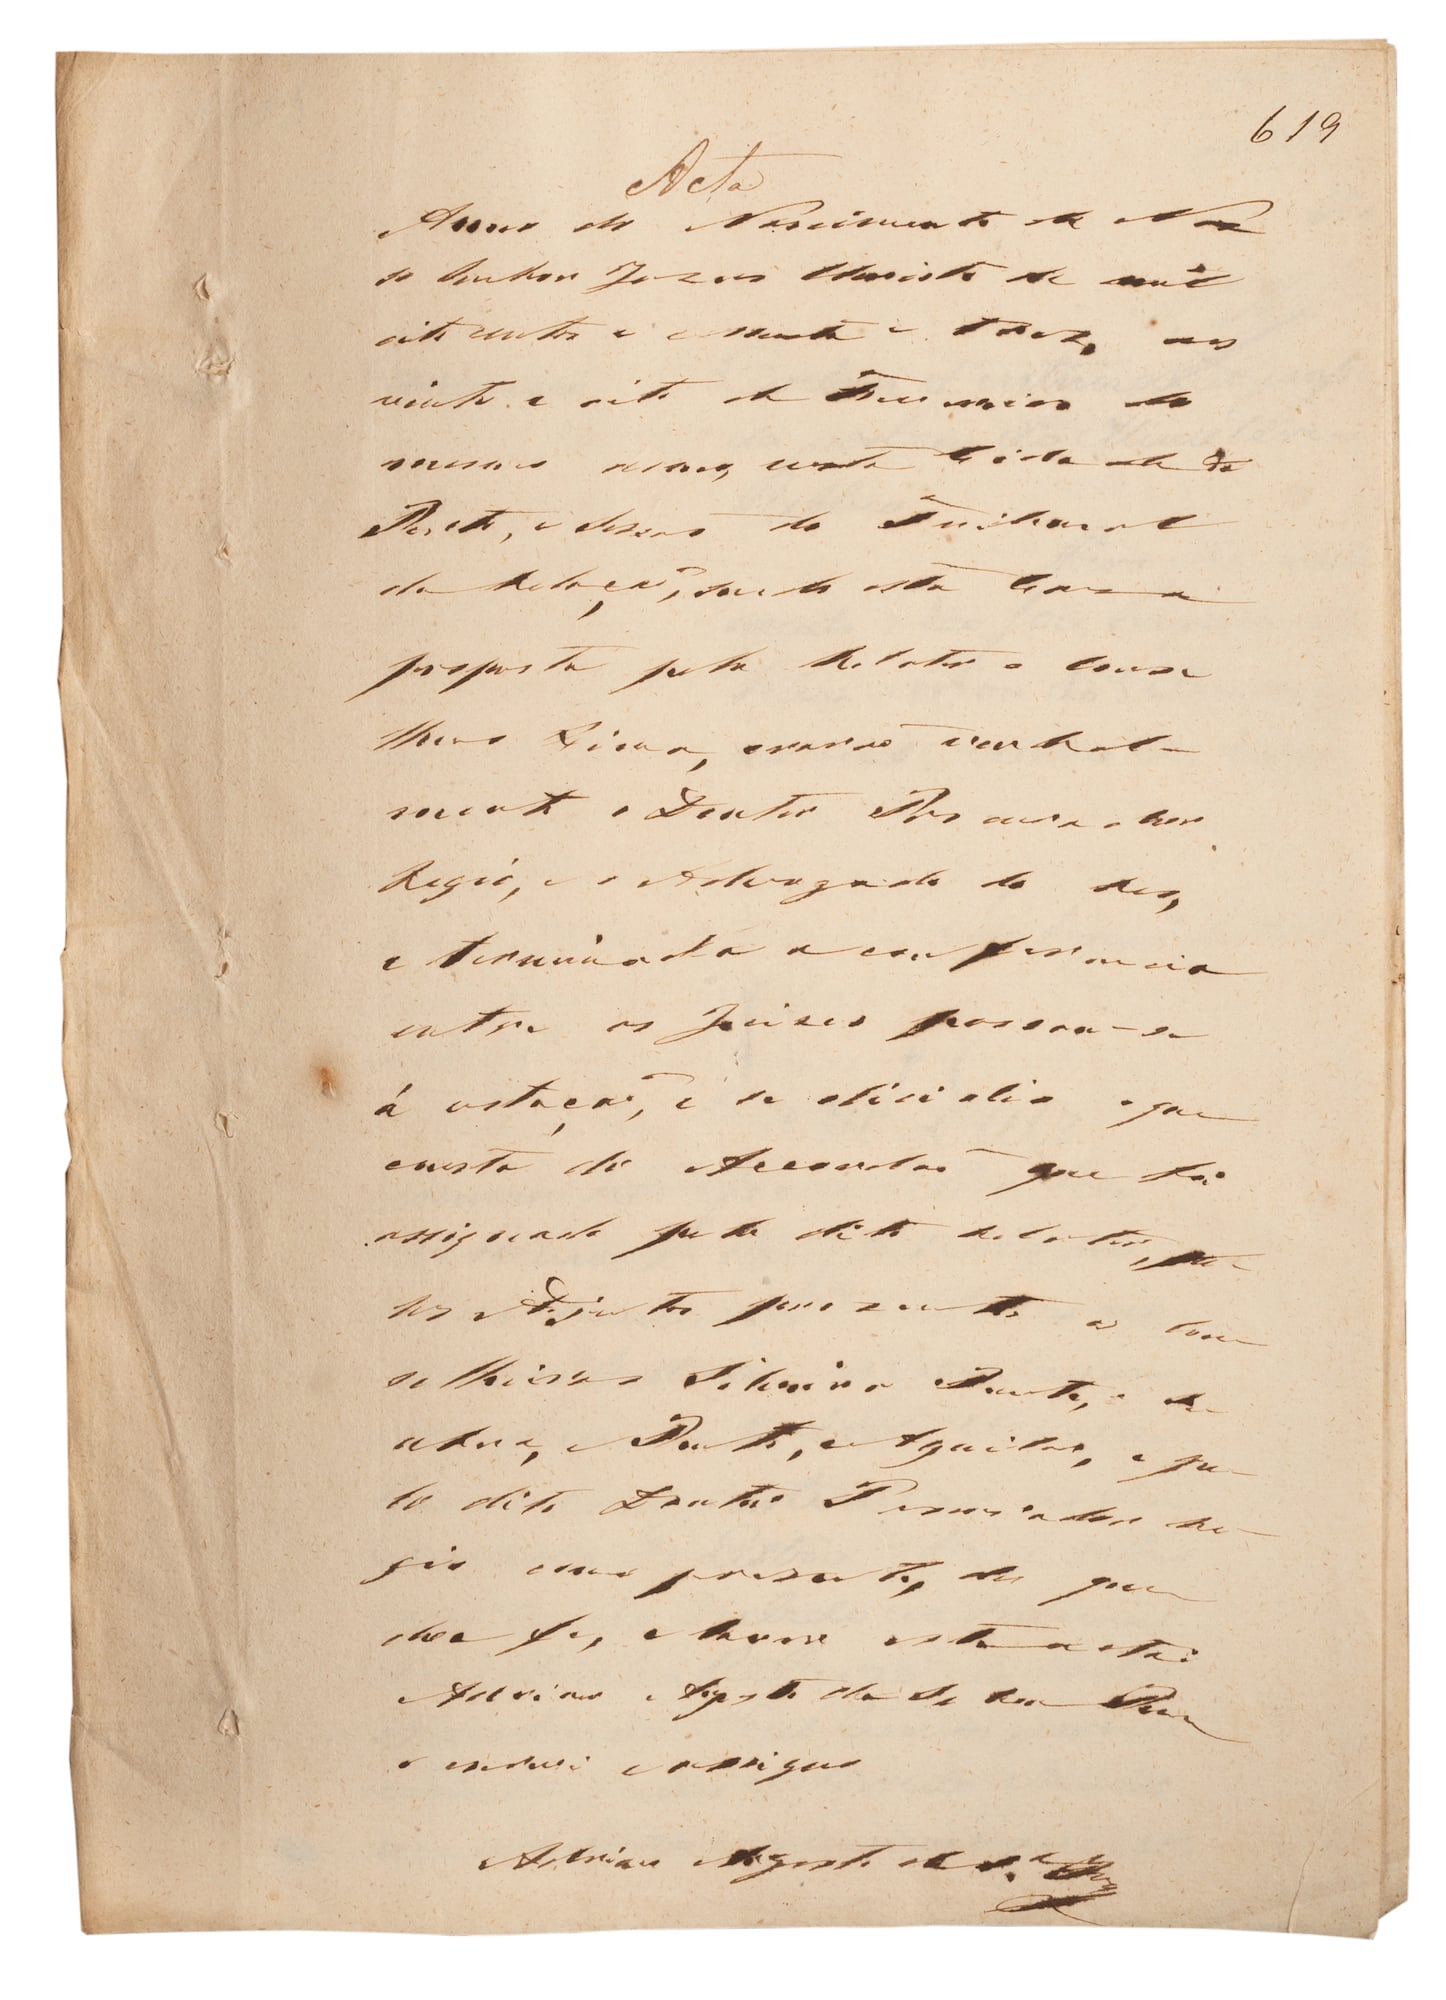 619
Acta
Anno do Nascimento de Nos
so Senhor Jezus Christo de mil
oito centos e noventa e trez, aos
vinte e oito de Fevereiro do
mesmo anno, nesta Cidade do
Porto, e Sessão do Tribunal
da Relação, sendo esta Causa
proposta pelo Relator o Conse
lheiro Lima, orarão verbal-
mente o Doutor Procurador
Regio, e o Advogado do Reo,
e terminada a conferencia
entre os Juizes passou-se
á votação, e se dicidio o que
consta do Accordão que foi
assignado pelo dito Relator, pe-
los Adjuntos prezentes os Con
selheiros Silveira Pinto,
e Pinto, e Aguilar, e pe-
lo dito Doutor Procurador Re-
gio como prezente, do que
dou fe, e lavrei esta acta:
Adriano Agosto da Silva
o escrevi e assigno
Adriano Agosto da S.ª